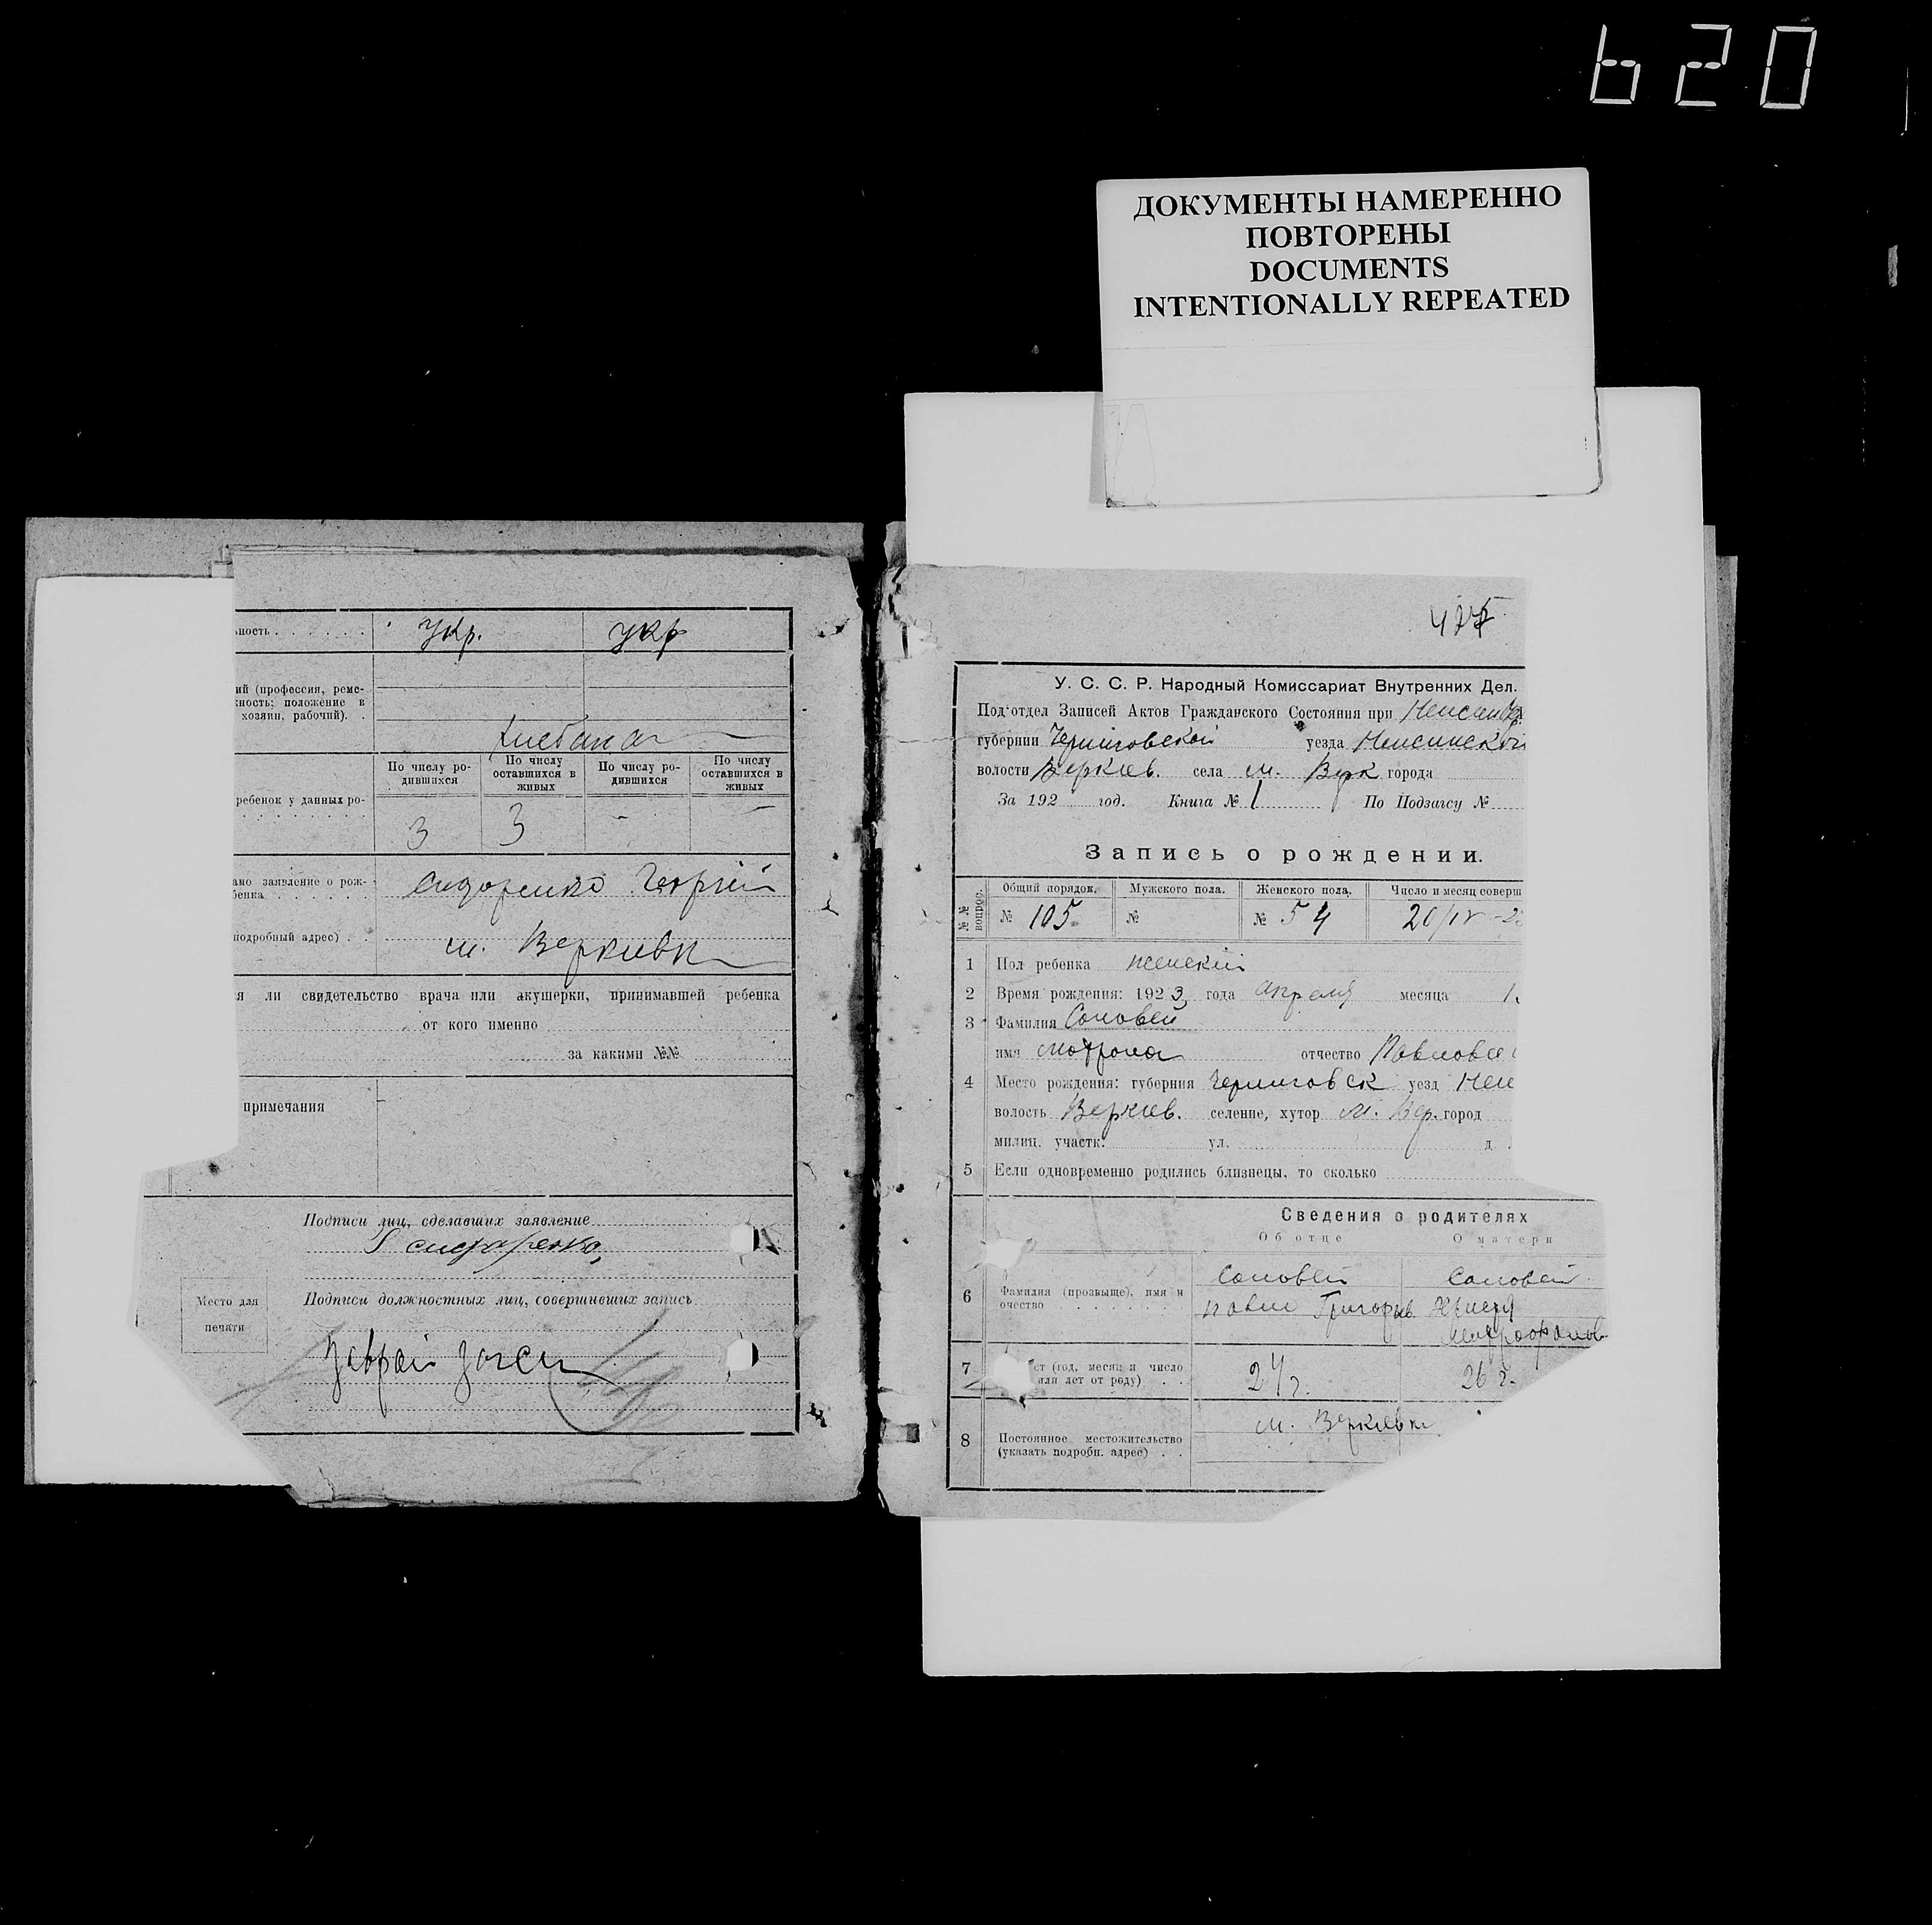 620
ДОКУМЕНТЫ НАМЕРЕННО
ПОВТОРЕНЫ
DOCUMENTS
INTENTIONALLY REPEATED
ность . . . . . . укр. укр
ий (профессия, реме-
ность; положение в
хозяин, рабочий). .
По числу ро-
дившихся
По числу
оставшихся в
живых
По числу ро-
дившихся
По числу
оставшихся в
живых
ребенок у данных ро-
3 3 - -
ано заявление о рож-
бенка . . . . . . Сидоренко Георгий
подробный адрес) . . м. Веркиевк
я ли свидетельство врача или акушерки, принимавшей ребенка
от кого именно
за какими №№
примечания
Подписи лиц, сделавших заявление
Г Сидоренко
Место для
печати
Подписи должностных лиц, совершивших запись
У. С. С. Р. Народный Комиссариат Внутренних Дел.
Под'отдел Записей Актов Гражданского Состояния при
губернии Черниговской уезда Нежинской
волости Веркиев. села м. Вер города
За 192 год. Книга № 1 По Подзагсу №
Запись о рождении.
№ № вопрос.
Общий порядок. Мужского пола. Женского пола. Число и месяц соверш
№ 105 № № 54 20/IV - 2
1 Пол ребенка женский
2 Время рождения: 1923 года апреля месяца 1
3 Фамилия Соловей
имя Мотрона отчество Павловна
4 Место рождения: губерния Черниговск уезд Неж
волость Веркиев. селение, хутор м. Вер. город
милиц. участк. ул. д.
5 Если одновременно родились близнецы, то сколько
Сведения о родителях
Об отце О матери
6 Фамилия (прозвыще), имя и
очество . . . . . . .
Соловей Соловей
Павел Григорьев.
Митрофанов
7 ст (год, месяц и число
или лет от роду) . . 24 г. 26 г.
8 Постоянное местожительство
(указать подробн. адрес) . . м. Веркиевк